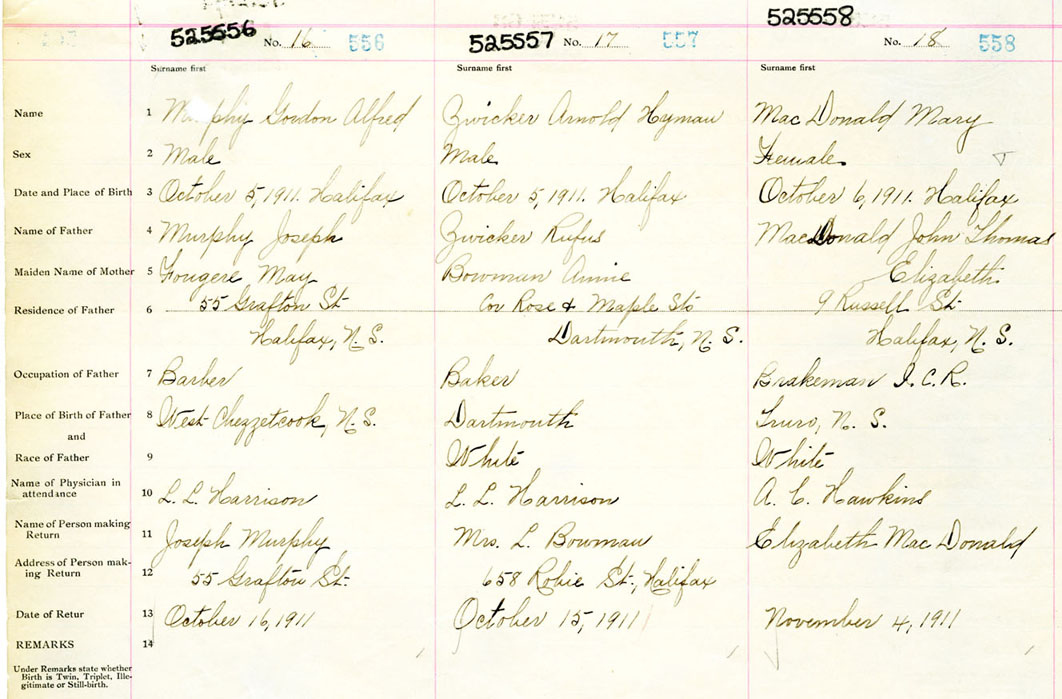 525556 No. 16 556
525557 No. 17 557
525558
No. 18 558
Surname first Surname first Surname first
Name 1 Murphy Gordon Alfred Zwicker Arnold Hyman MacDonald Mary
Sex 2 Male Male Female
Date and Place of Birth 3 October 5, 1911. Halifax October 5, 1911. Halifax October 6, 1911. Halifax
Name of Father 4 Murphy Joseph Zwicker Rufus MacDonald John Thomas
Maiden Name of Mother 5 Fougere May Bowman Annie Elizabeth
Residence of Father 6 55 Grafton St Cor Rose & Maple Sts 9 Russell St
Halifax, N. S. Dartmouth, N. S. Halifax, N. S.
Occupation of Father 7 Barber Baker Brakeman I. C. R.
Place of Birth of Father 8 West Chezzetcook, N. S. Dartmouth Truro, N. S.
and
Race of Father 9 White White
Name of Physician in
attendance 10 L. L. Harrison L. L. Harrison A. C. Hawkins
Name of Person making
Return 11 Joseph Murphy Mrs. L. Bowman Elizabeth MacDonald
Address of Person mak-
ing Return 12 55 Grafton St. 658 Robie St., Halifax
Date of Retur 13 October 16, 1911 October 15, 1911 November 4, 1911
REMARKS 14
Under Remarks state whether
Birth is Twin, Triplet, Ille-
gitimate or Still-birth.